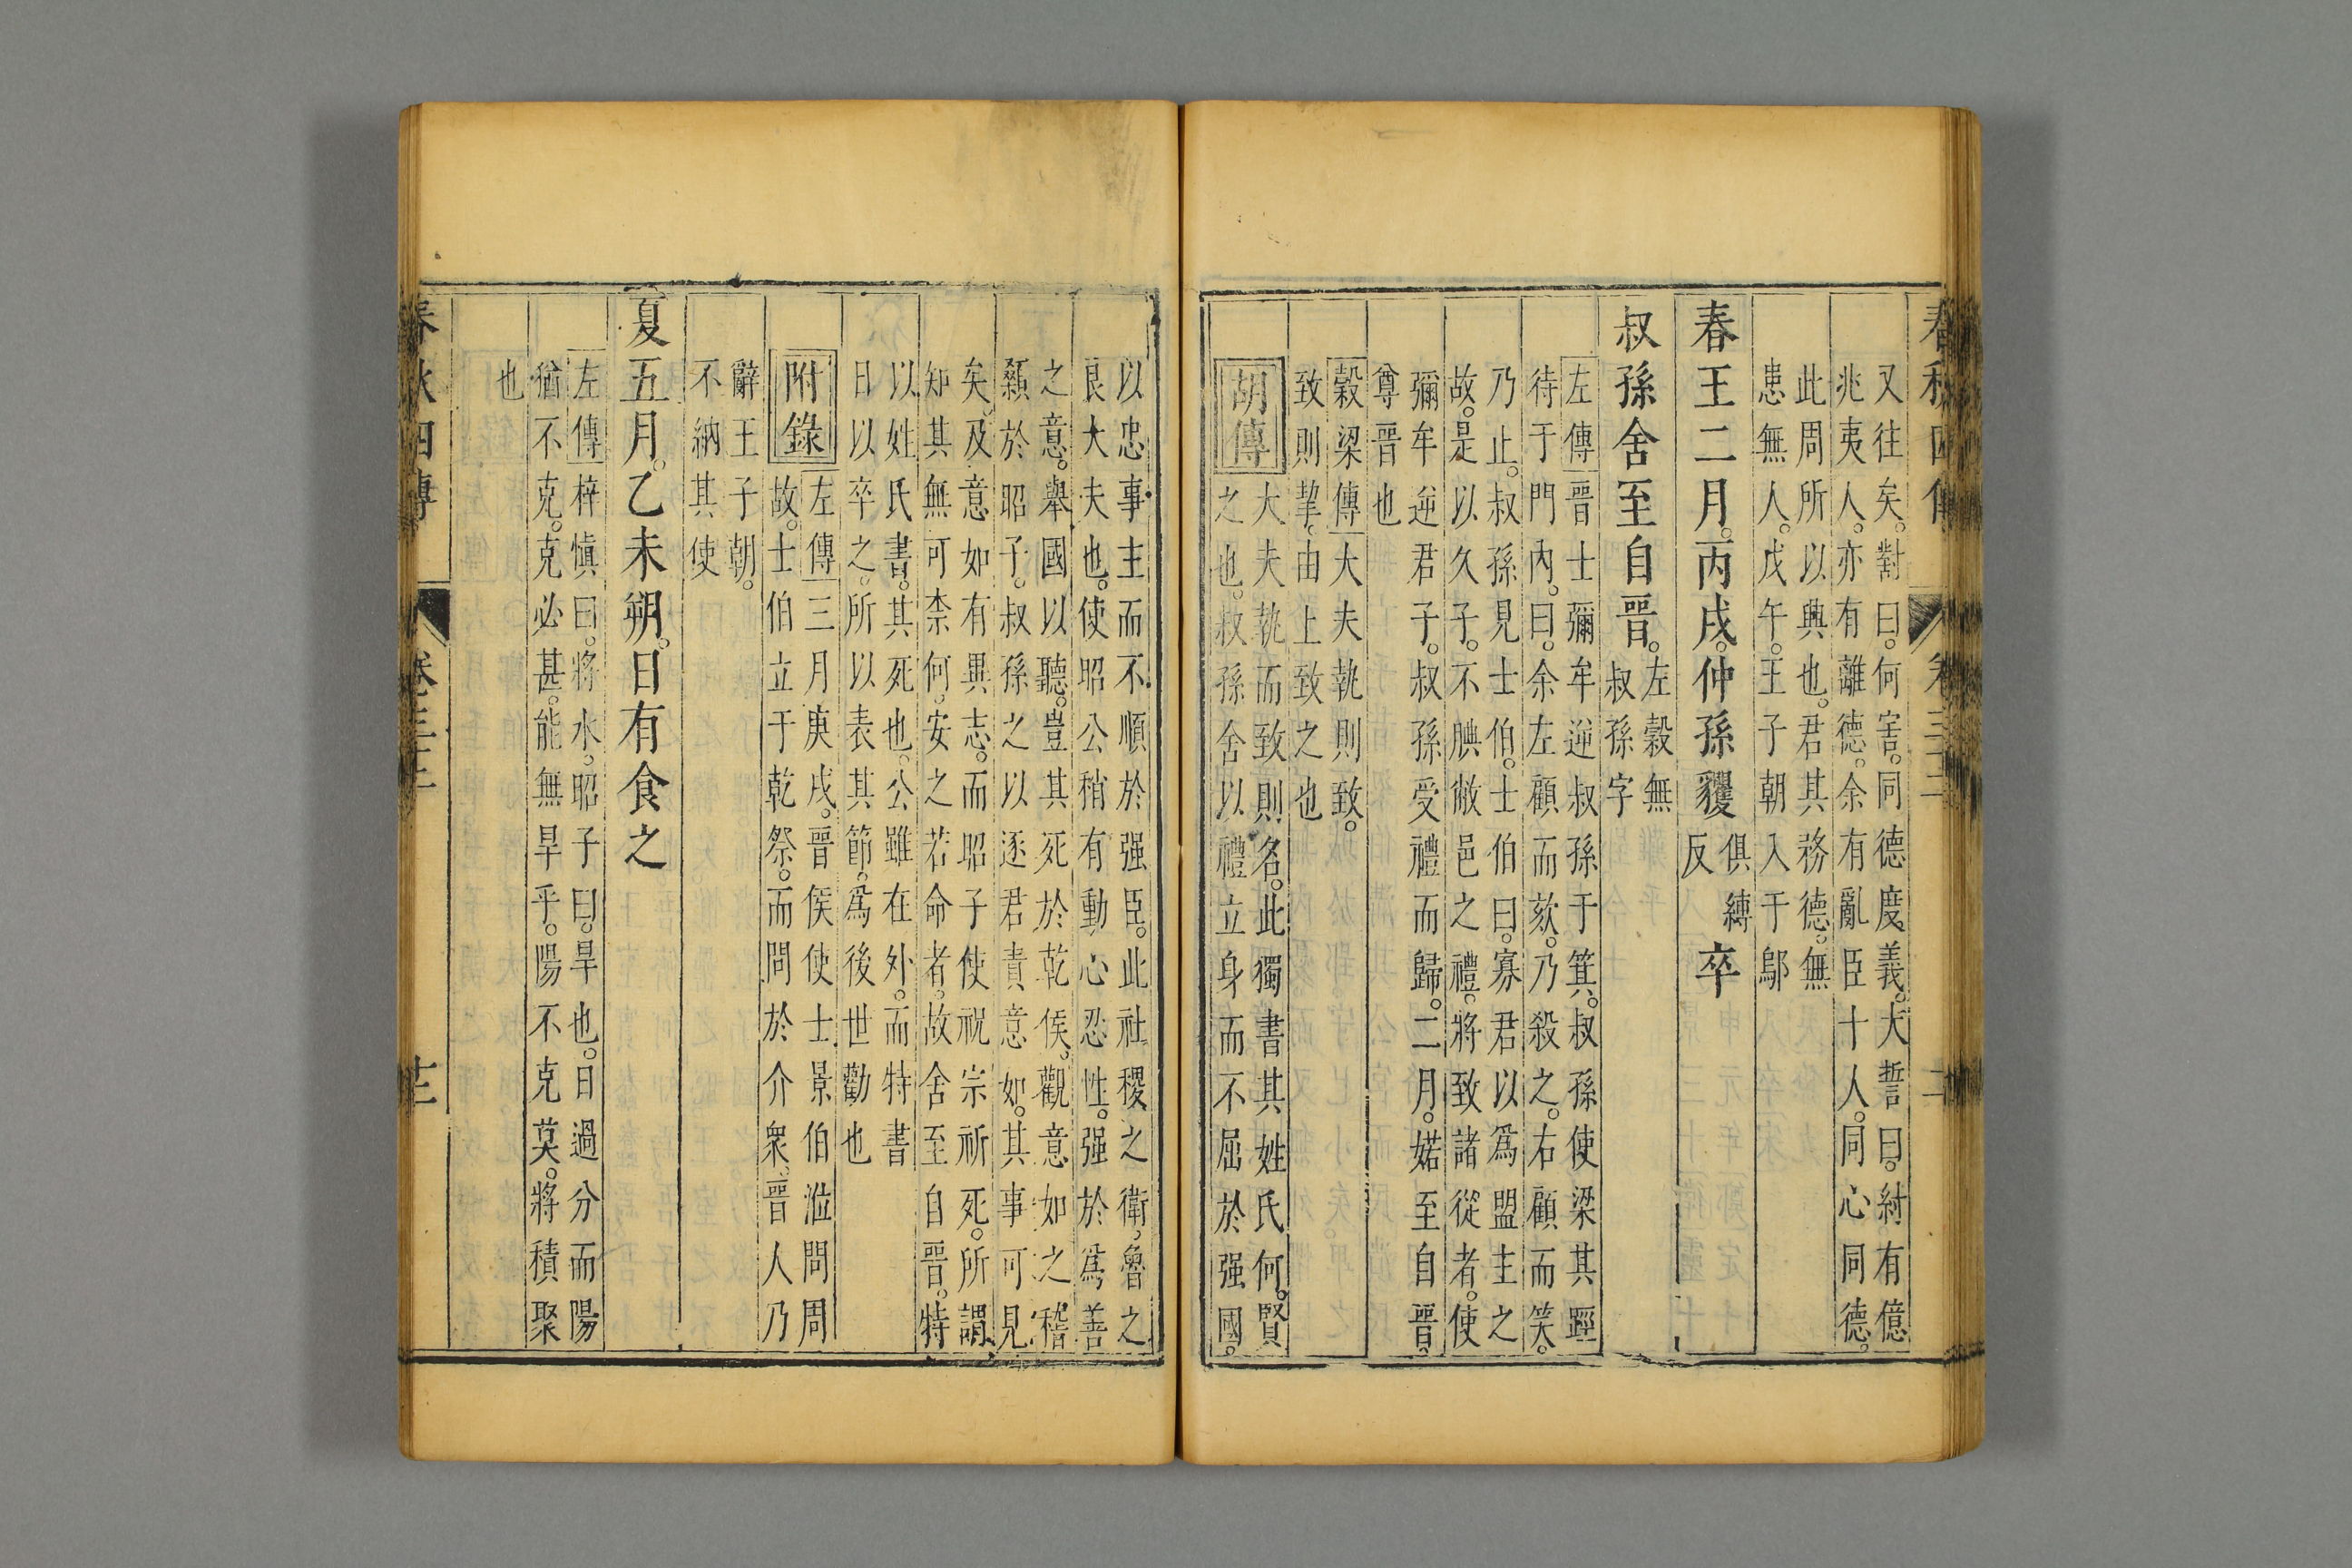 春秋四傳 卷三十二
又往矣。對曰。何害。同德度義。大誓曰。紂有億
兆夷人。亦有離德。余有亂臣十人。同心同德。
此周所以興也。君其務德。無
患無人。戊午。王子朝入于鄔
春王二月。丙戌。仲孫貜卒
俱縛
反
叔孫舍至自晉。
左穀無
叔孫字
左傳晉士彌牟逆叔孫于箕。叔孫使梁其踁
待于門內。曰。余左顧而欬。乃殺之。右顧而笑。
乃止。叔孫見士伯。士伯曰。寡君以爲盟主之
故。是以久子。不腆敝邑之禮。將致諸從者。使
彌牟逆君子。叔孫受禮而歸。二月。婼至自晉。
尊晉也
穀梁傳大夫執則致。
致則挈。由上致之也
胡傳
大夫執而致則名。此獨書其姓氏何。賢
之也。叔孫舍以禮立身而不屈於强國。
以忠事主而不順於强臣。此社稷之衛。魯之
良大夫也。使昭公稍有動心忍性。强於爲善
之意。舉國以聽。豈其死於乾侯。觀意如之稽
顙於昭子。叔孫之以逐君責意如。其事可見
矣。及意如有異志。而昭子使祝宗祈死。所謂
知其無可柰何。安之若命者。故舍至自晉。特
以姓氏書。其死也。公雖在外。而特書
日以卒之。所以表其節。爲後世勸也
附錄
左傳三月庚戌。晉侯使士景伯涖問周
故。士伯立于乾祭。而問於介衆。晉人乃
辭王子朝。
不納其使
夏五月。乙未朔。日有食之
左傳梓愼曰。將水。昭子曰。旱也。日過分而陽
猶不克。克必甚。能無旱乎。陽不克莫。將積聚
也
春秋四傳 卷三十二